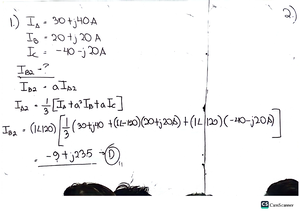 1.) I_A = 30+j40A
I_B = 20+j20A
I_C = -40-j20A
I_B2 = ?
I_B2 = aI_A2
I_A2 = 1/3 [I_A+a²I_B+aI_C]
I_B2 = (1∠120)[1/3(30+j40+(1∠-120)(20+j20A)+(1∠120)(-40-j20A)]
= -9+j235 → D
2.)
CS CamScanner